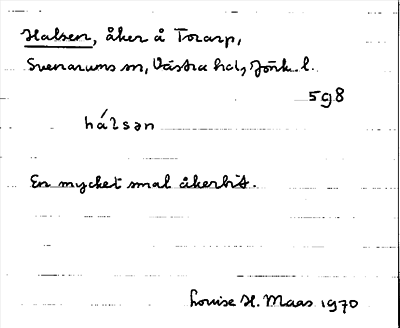 Halsen, åker å Torarp,
Svenarums sn, Västra hd, Jönk. l.
5g8
hálsən
En mycket smal åkerbit.
Louise H. Maas 1970